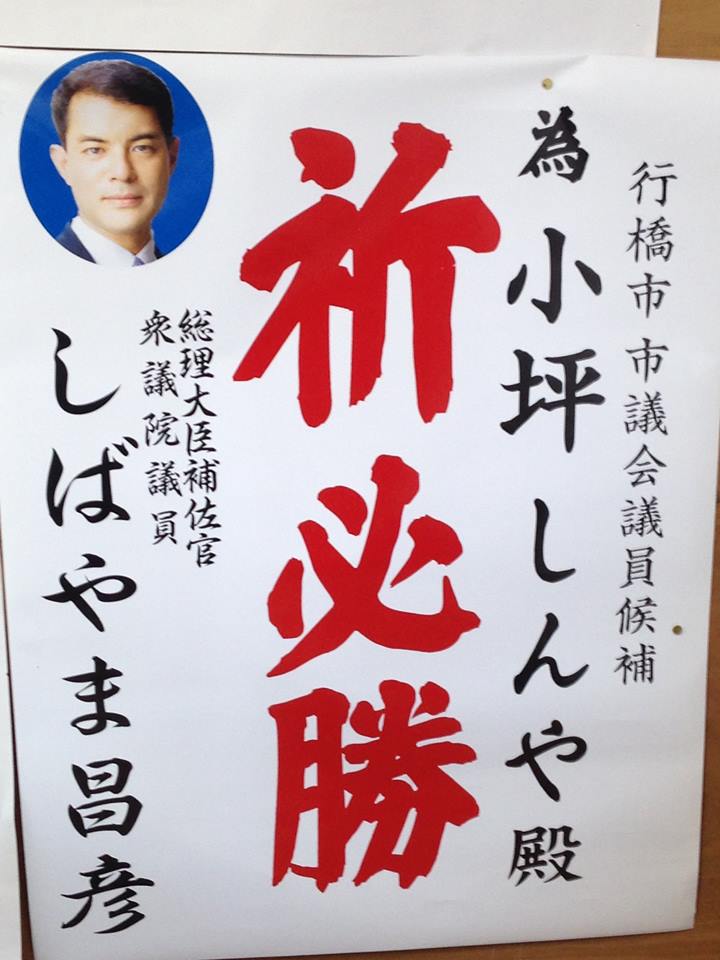 行橋市市議会議員候補
為小坪しんや殿
祈必勝
総理大臣補佐官
衆議院議員
しばやま昌彦